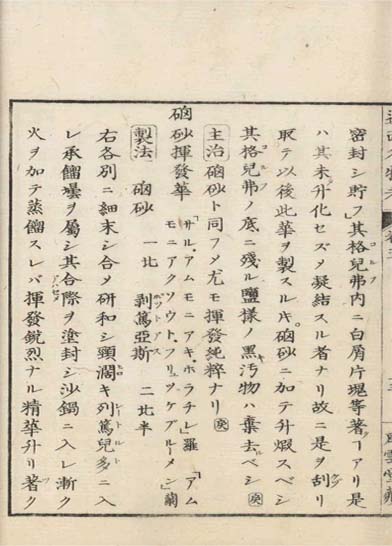 密封シ貯フ」其格兒弗内ニ白屑片塊等著クヿアリ是
コルフ
ハ其未升化セズメ凝結スル者ナリ故ニ是ヲ刮リ
ケヅ
取テ以後此華ヲ製スルキ硇砂ニ加テ升煆スベシ
其格兒弗ノ底ニ殘ル鹽様ノ黒汚物ハ棄去ベシ
コルフ
主治 硇砂ト同フメ尤モ揮發純粹ナリ
硇砂揮發華 「サル、アムモニアキ、ホラチレ」羅 「アム
モニアクソウト、フリュツゲブルーメン」蘭
製法 硇砂 一比 剥篤亞斯 二比半
ポットアス
右各別ニ細末シ合メ研和シ頸濶キ列篤兒多ニ入
レトルト
レ承餾罎ヲ屬シ其合際ヲ塗封シ沙鍋ニ入レ漸ク
火ヲ加テ蒸餾スレバ揮發鋭烈ナル精華升リ著ク